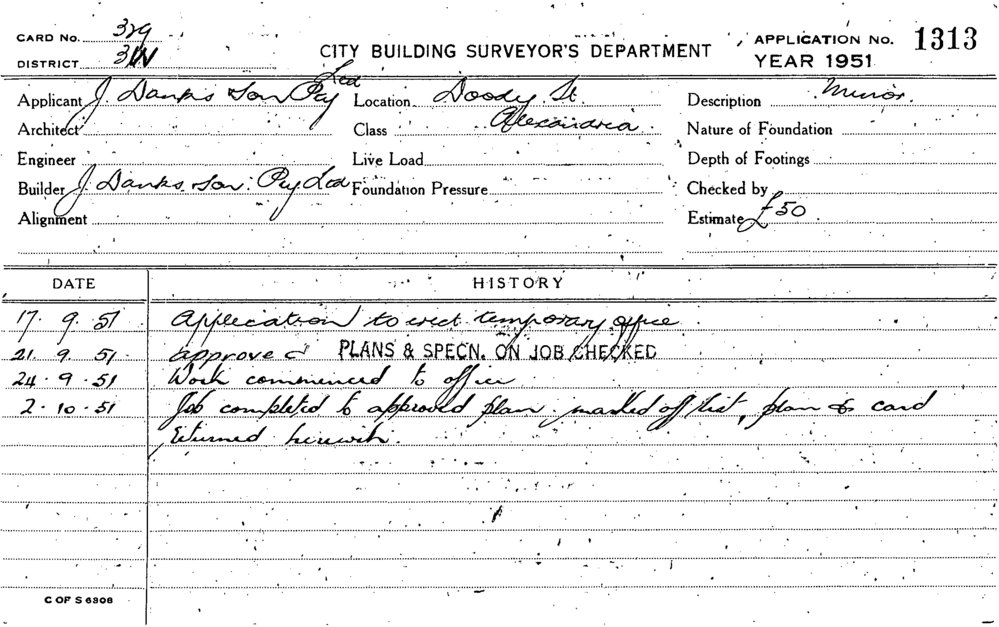 CARD No. 329
DISTRICT. 3W
CITY BUILDING SURVEYOR'S DEPARTMENT
APPLICATION No. 1313
YEAR 1951
Applicant J. Danks & Son Pty Ltd Location Doody St. Description Minor.
Architect Class Alexandria. Nature of Foundation
Engineer Live Load Depth of Footings
Builder J. Danks & Son. Pty Ltd Foundation Pressure Checked by
Alignment Estimate £50
DATE HISTORY
17. 9. 51 Application to erect temporary office
21. 9. 51 approved PLANS & SPECN. ON JOB CHECKED
24. 9. 51 Work commenced to office
2. 10. 51 Job completed to approved plan. marked off list, plan & card
returned herewith.
C OF S 6306